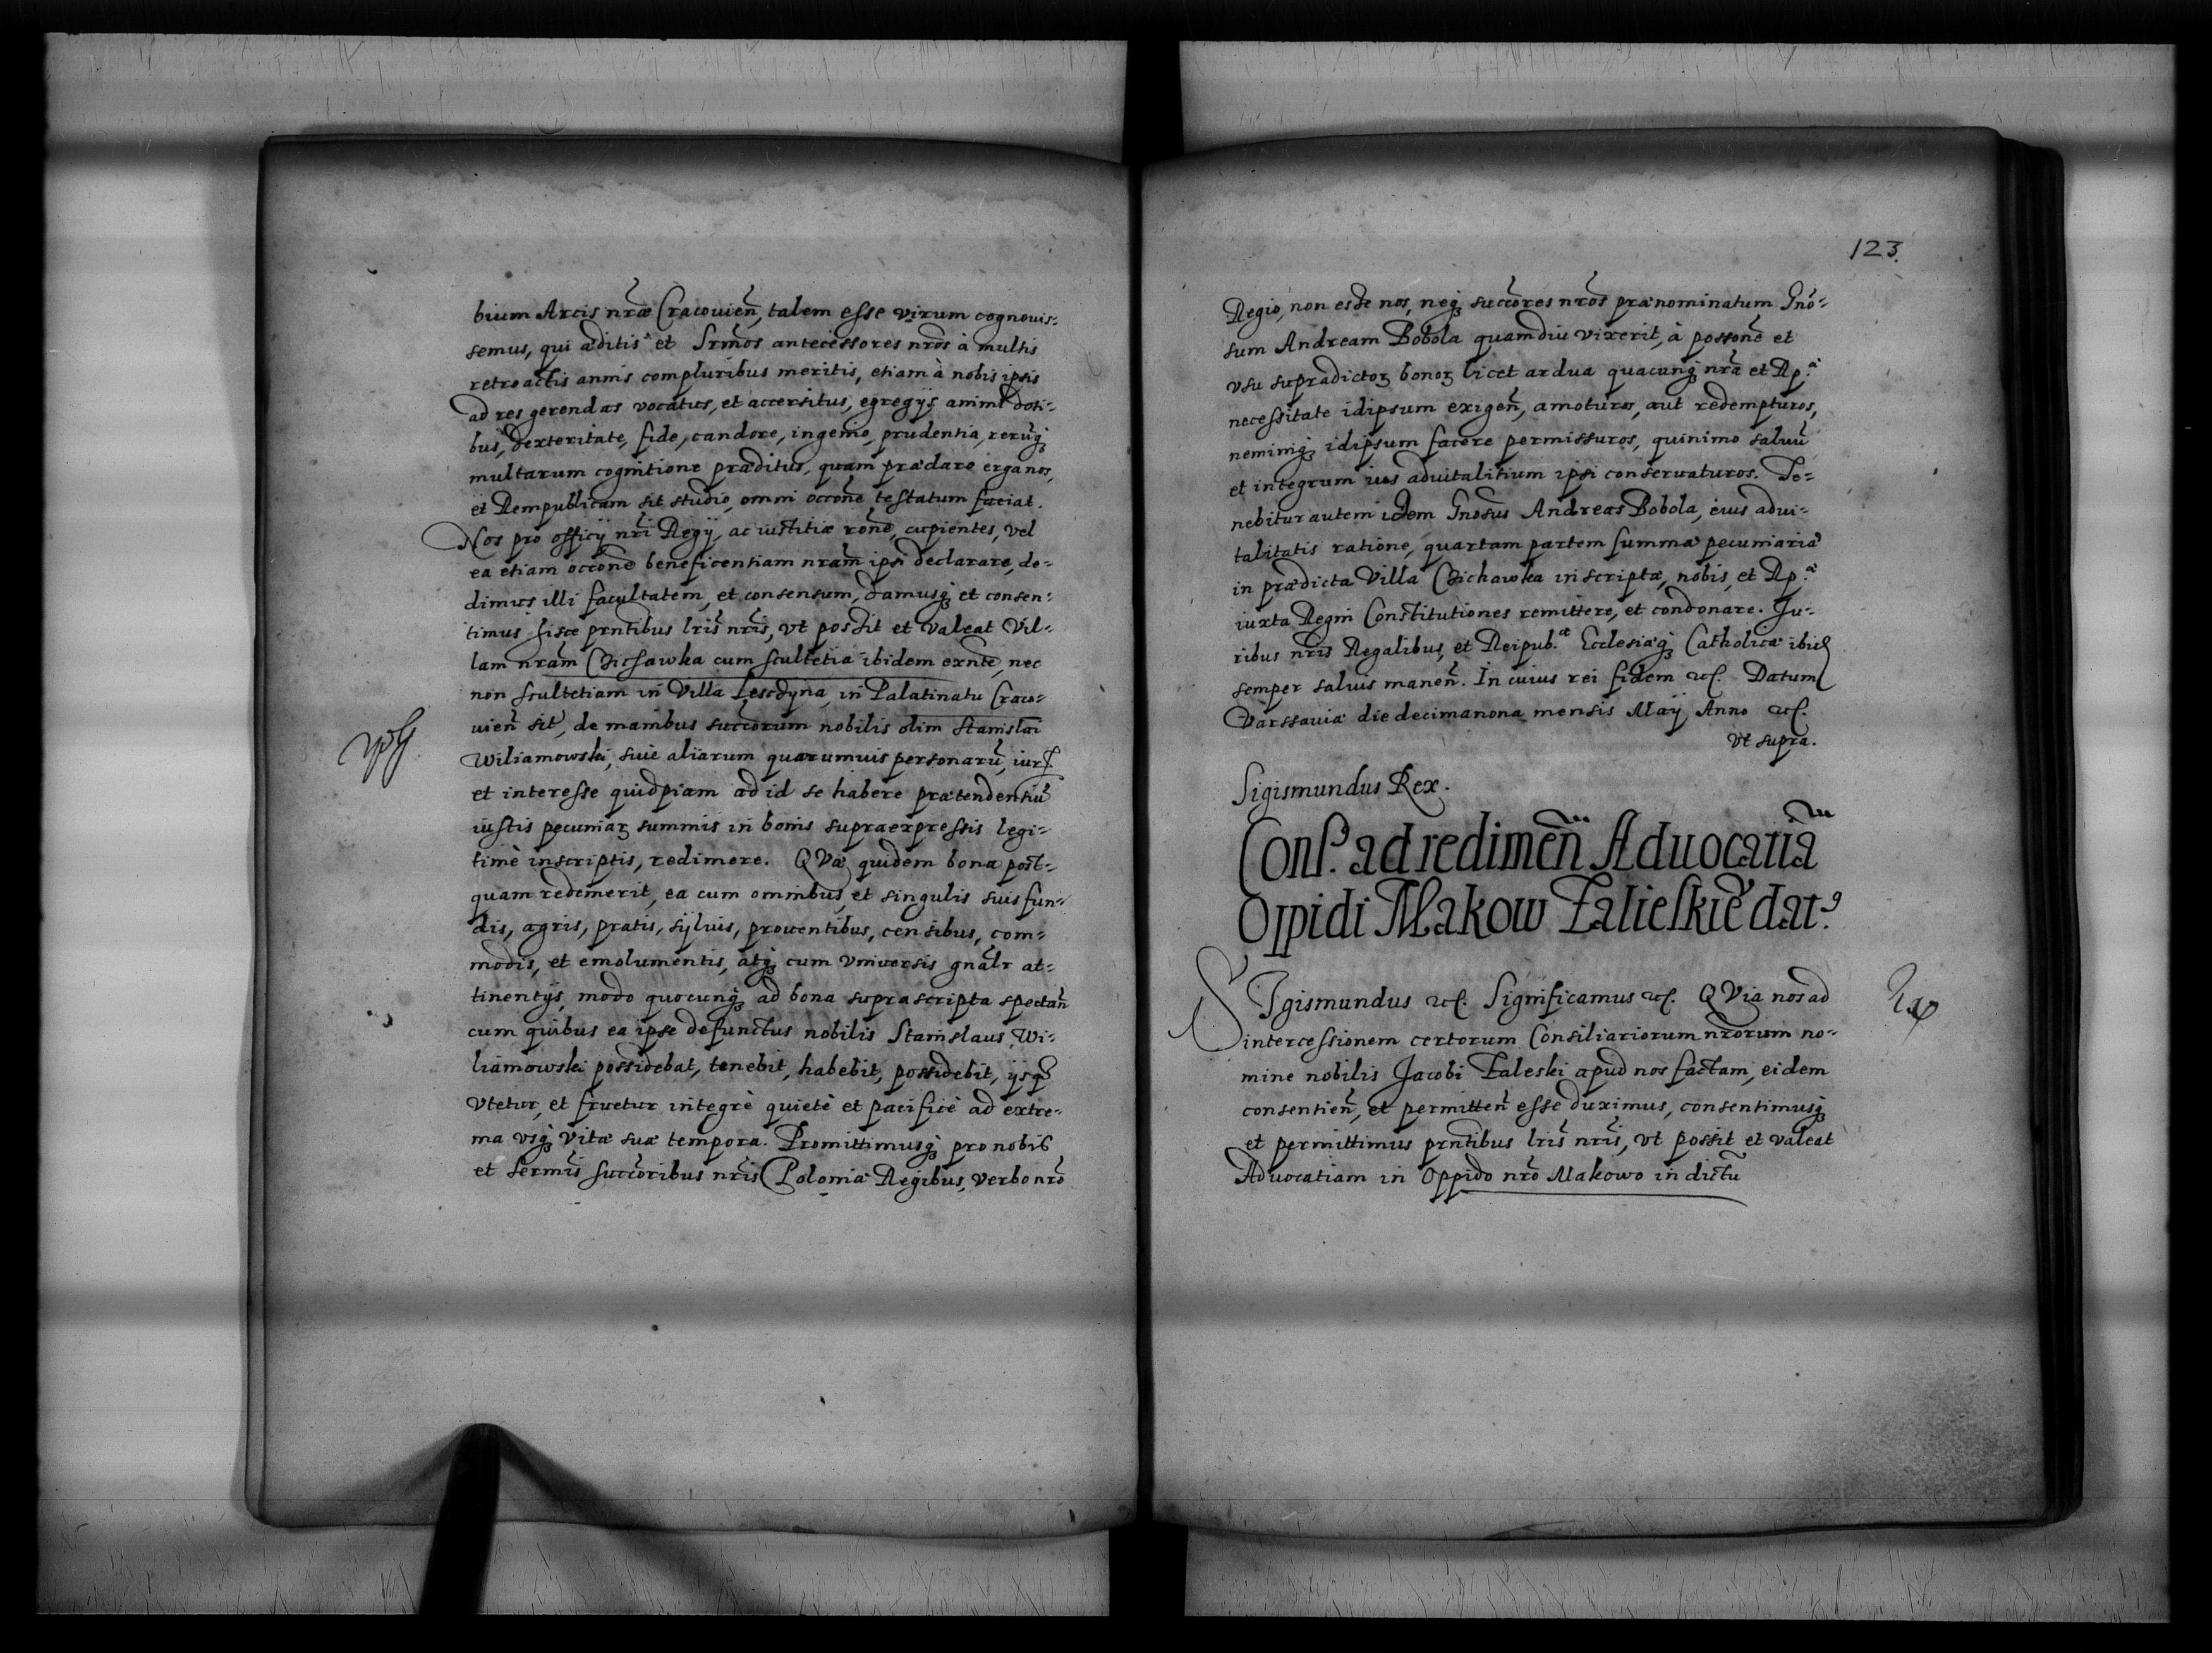 bium Arcis nr̃æ Cracouien̄, talem esse virum cognouis-
semus, qui æditis et Srm̃os antecessores nr̃os à multis
retroactis annis compluribus meritis, etiam à nobis ipsis
ad res gerendas vocatus, et accersitus, egregijs animi doti-
bus, dexteritate, fide, candore, ingenio, prudentia, rerūq₃
multarum cognitione præditus, quam præclaro erga nos,
et Rempublicam sit studio, omni occōne testatum faciat.
Nos pro officij nr̃i Regij, ac iustitiæ rōne, cupientes, vel
ea etiam occōne beneficentiam nrãm ipsi declarare, de-
dimus illi facultatem, et consensum, damusq₃ et consen-
timus hisce prn̄tibus lr̃is nr̃is, vt possit et valeat Vil-
lam nrãm Bichawka cum scultetia ibidem exn̄te, nec
non scultetiam in Villa Lescdyna, in Palatinatu Craco-
uien̄ sit, de manibus succōrum nobilis olim Stanislai
Wiliamowski, siue aliarum quarumuis personarū, iur
et interesse quidpiam ad id se habere prætendentiū
iustis pecuniaꝝ summis in bonis supraexpressis legi-
timè inscriptis, redimere. QVæ quidem bona post-
quam redemerit, ea cum omnibus, et singulis suis fun-
dis, agris, pratis, sÿluis, prouentibus, censibus, com-
modis, et emolumentis, atq₃ cum vniuersis gnãlr at-
tinentijs, modo quocunq₃ ad bona suprascripta spectan̄
cum quibus ea ipse defunctus nobilis Stanislaus Wi-
liamowski possidebat, tenebit, habebit, possidebit, ijsq₃
vtetur, et fruetur integrè quietè et pacificè ad extre-
ma vsq₃ vitæ suæ tempora. Promittimusq₃ pro nobis
et Sermīs succōribus nr̃is Poloniæ Regibus, verbo nr̃o
123.
Regio, non esse nos, neq₃ succōres nr̃os prænominatum Gnō-
sum Andream Bobola quamdiu vixerit, à possōne et
vsu supradictoꝝ bonoꝝ licet ardua quacunq₃ nrã et Rp.æ
necessitate idipsum exigen̄, amoturos, aut redempturos,
neminiq₃ idipsum facere permissuros, quinimo saluū
et integrum ius aduitalitium ipsi conseruaturos. Te-
nebitur autem idem Gnōsus Andreas Bobola, eius adui-
talitatis ratione, quartam partem summæ pecuniariæ
in prædicta Villa Bichawka inscriptæ, nobis, et Rp.æ
iuxta Regni Constitutiones remittere, et condonare. Iu-
ribus nr̃is Regalibus, et Reipub.æ Ecclesiæq₃ Catholicæ ibid
semper saluis manen̄. In cuius rei fidem etc. Datum
Varssauiæ die decimanona mensis Maij Anno etc.
vt supra.
Sigismundus Rex.
Cons. ad redimen̄ Aduocatiã
Oppidi Makow Zalieskiē dat⁹.
SIgismundus etc. Significamus etc. QVia nos ad
intercessionem certorum Consiliariorum nrōrum no-
mine nobilis Jacobi Zaleski apud nos factam, eidem
consentien̄, et permitten̄ esse duximus, consentimusq₃
et permittimus prn̄tibus lr̃is nr̃is, vt possit et valeat
Aduocatiam in Oppido nr̃o Makowo in dictū